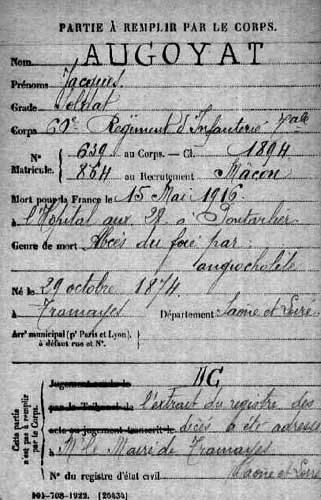 PARTIE À REMPLIR PAR LE CORPS.
Nom AUGOYAT
Prénoms Jacques
Grade Soldat
Corps 60e Régiment d'Infanterie
N° 639 au Corps. — Cl. 1894
Matricule. 864 au Recrutement Mâcon
Mort pour la France le 15 Mai 1916
à l'Hôpital aux à Pontarlier
Genre de mort Abcès du foie par
angiocholite
Né le 29 octobre 1874
à Tramayes Département Saone et Loire
Arrt municipal (pr Paris et Lyon), à défaut rue et N°.
Cette partie n'est pas à remplir par le Corps.
l'extrait du registre des
décès a été adressé
à Mr le Maire de Tramayes
Saone et Loire
N° du registre d'état civil
101-708-1922. [26434]